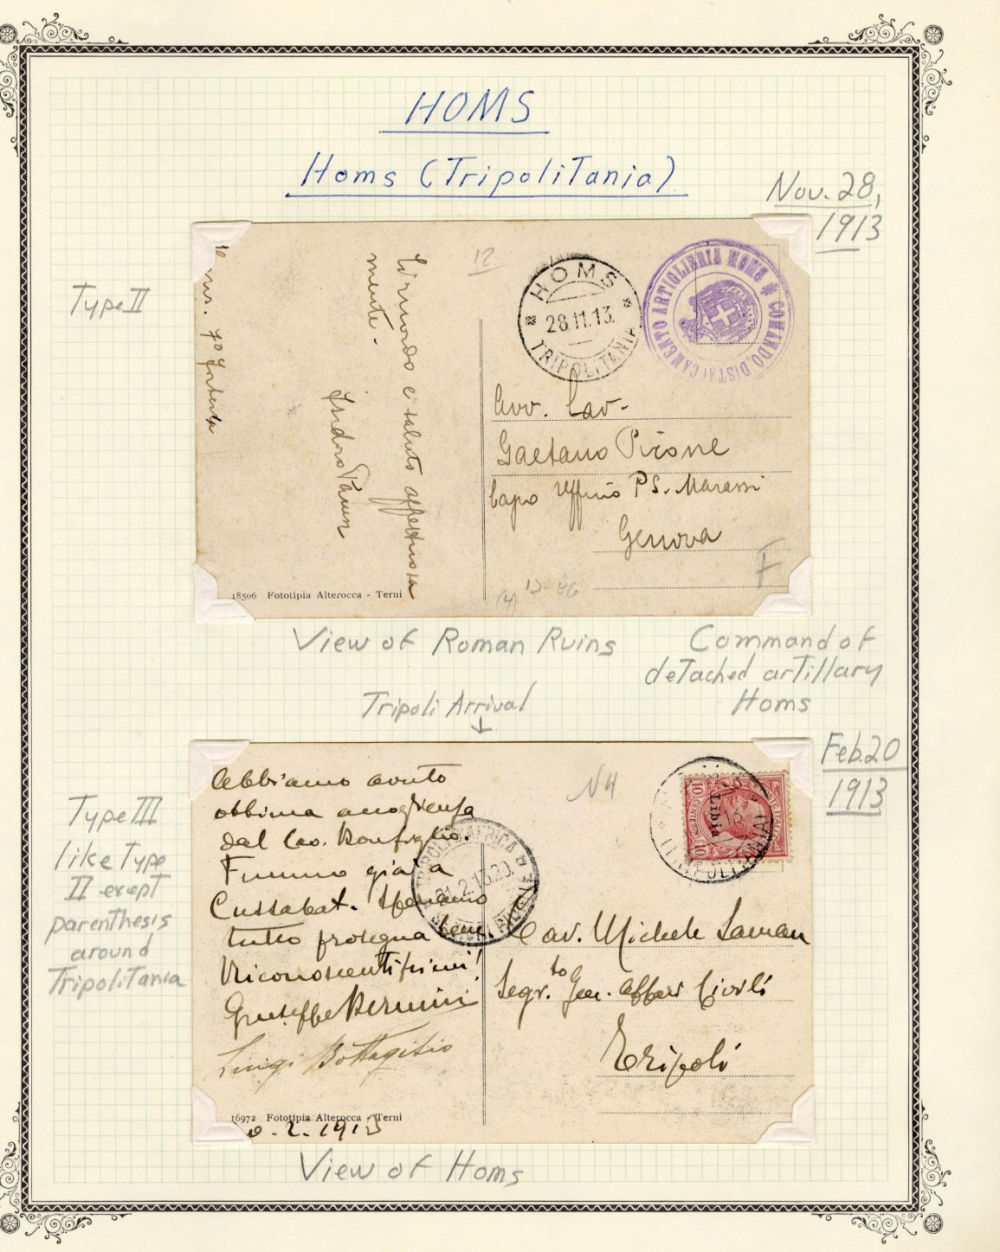 HOMS
Homs (Tripolitania)
Nov. 28,
1913
Type II
12
HOMS
28.11.13.
TRIPOLITANIA
COMANDO DISTACCAMENTO ARTIGLIERIA HOMS
e saluto affettuosa
mente.
Avv. Cav.
Gaetano Picone
Capo Ufficio P.S. Marassi
Genova
F
(4) 12-86
18506 Fototipia Alterocca - Terni
View of Roman Ruins
Command of
detached artillary
Homs
Tripoli Arrival
↓
Feb. 20
1913
Type III
like Type
II exept
parenthesis
around
Tripolitania
Abbiamo avuto
ottima accoglienza
dal Cav. Bonfiglio.
Fummo già a
Cussabat. Speriamo
tutto prosegua bene.
Riconoscentissimi!
Giuseppe
Luigi
N4
Libia
10 10
(TRIPOLITANIA)
21.2.13.20
Cav. Michele
Segr.to Gen. Affari Civili
Tripoli
16972 Fototipia Alterocca - Terni
0.2.1913
View of Homs